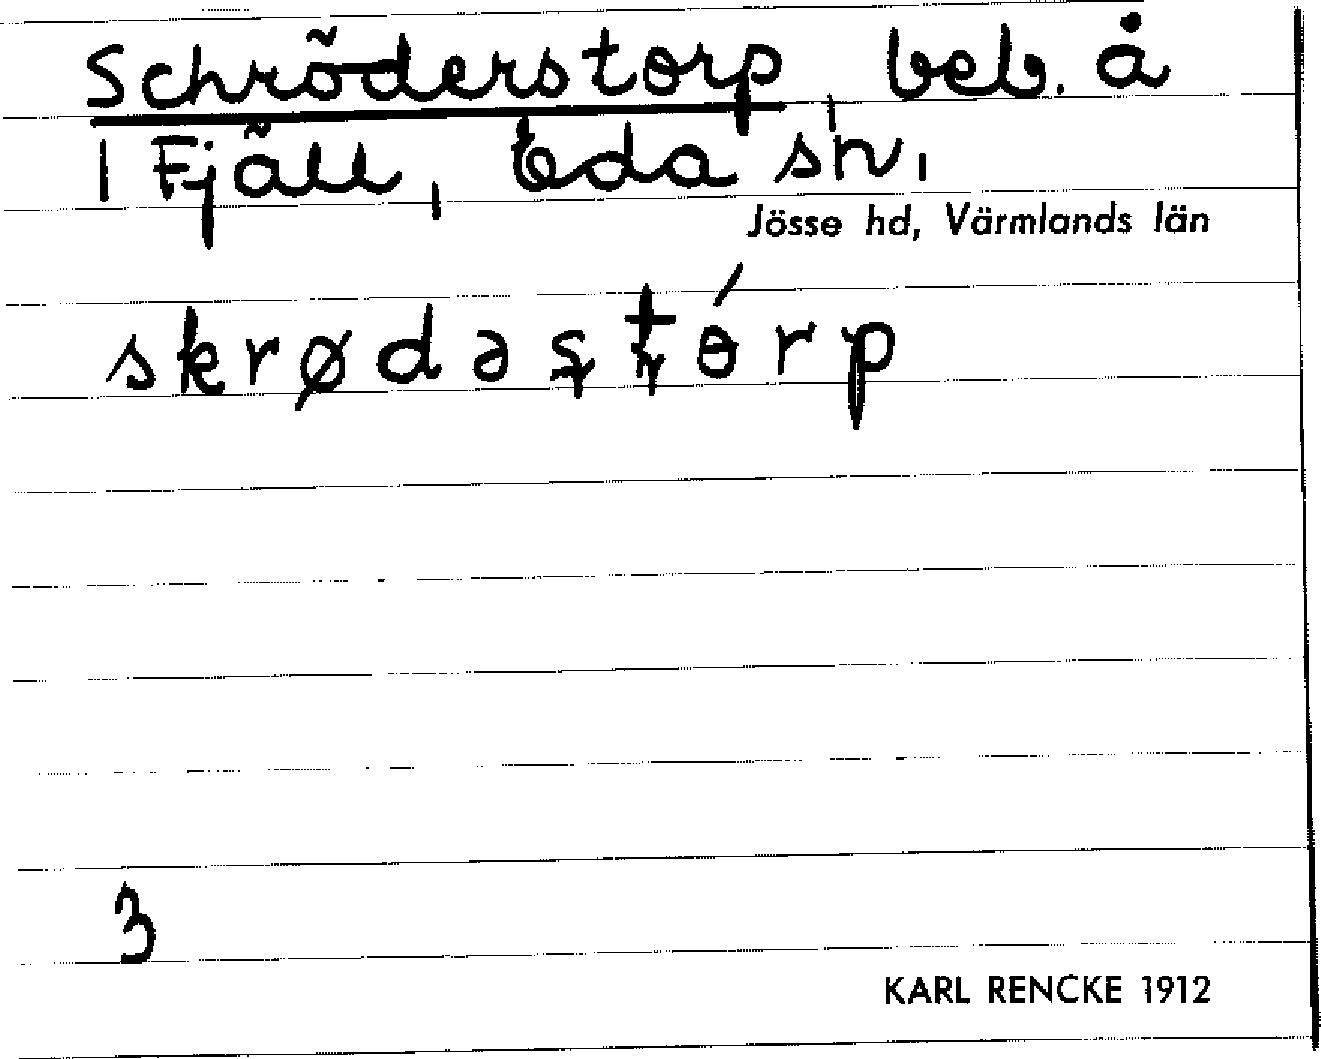 Schröderstorp, beb. å
1 Fjäll, Eda sn,
Jösse hd, Värmlands län
skrødəstɵ́rp
3
KARL RENCKE 1912